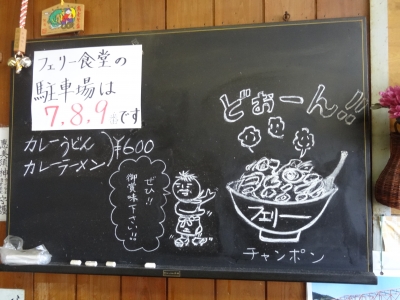 フェリー食堂の
駐車場は
7,8,9です
カレーうどん
カレーラーメン
¥600
ぜひ!!
御賞味
下さい!!
どぉーん!!
フェリー
チャンポン